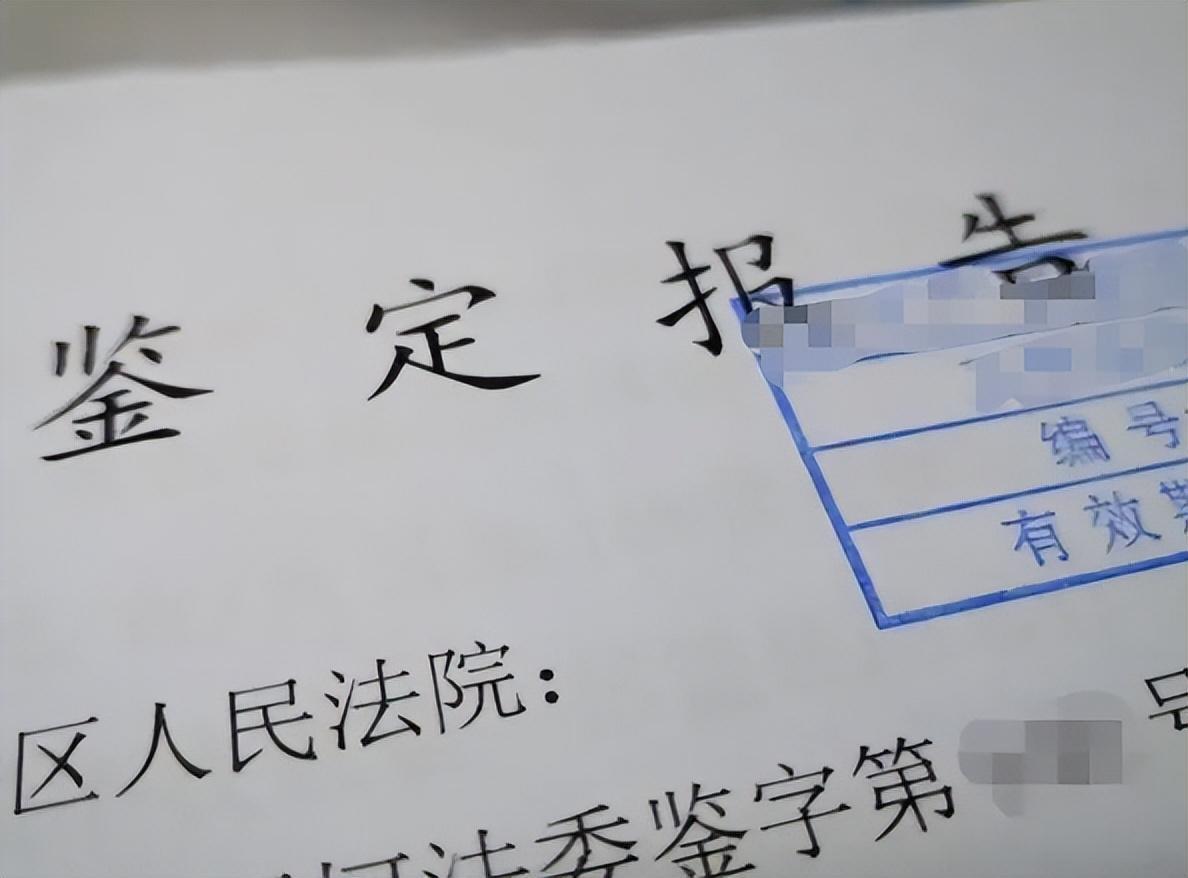 鉴定报告
编号
有效期
区人民法院：
法委鉴字第 号